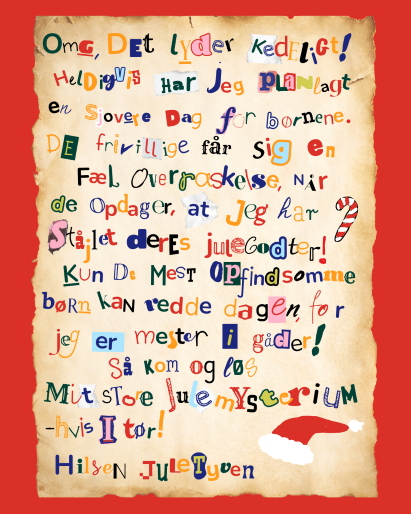 Omg, DEt lyder kedELiGt!
HelDigvis Har Jeg PlanLagt
en Sjovere Dag for børnene.
DE frivillige får sig en
Fæl Overraskelse, NåR
de Opdager, at Jeg har
Stjålet derEs juleGodter!
Kun De MesT OPfindsomme
børn KAN redde dagen, for
jeg er mester i gåder!
Så kom og løs
Mit store Julemysterium
-hvis I tør!
Hilsen JuleTyven